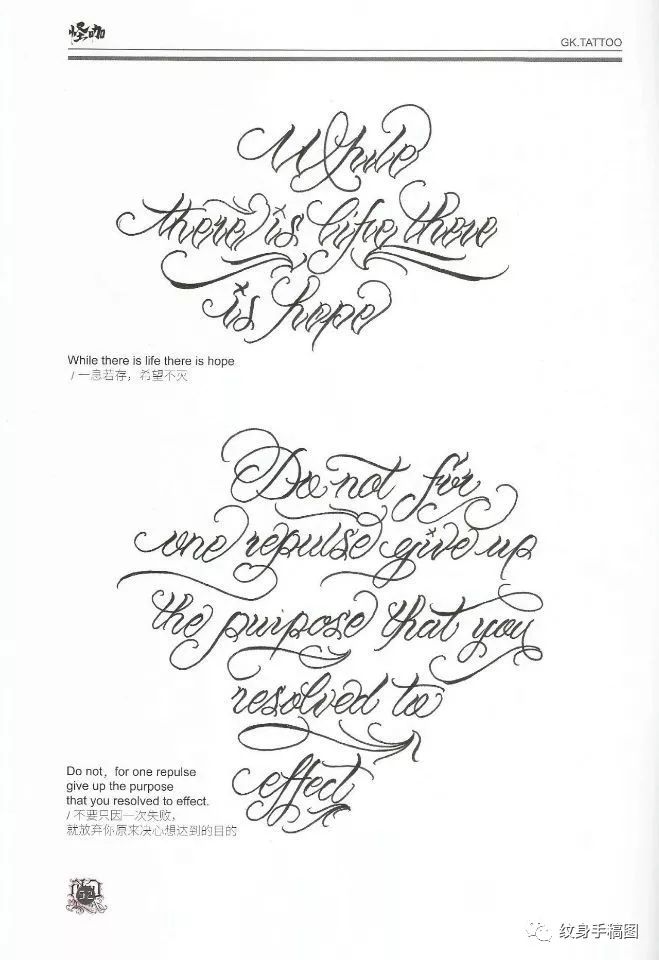 怪咖
GK.TATTOO
While
there is life there
is hope
While there is life there is hope
/ 一息若存，希望不灭
Do not for
one repulse give up
the purpose that you
resolved to
effect
Do not，for one repulse
give up the purpose
that you resolved to effect.
/ 不要只因一次失败，
就放弃你原来决心想达到的目的
纹身手稿图